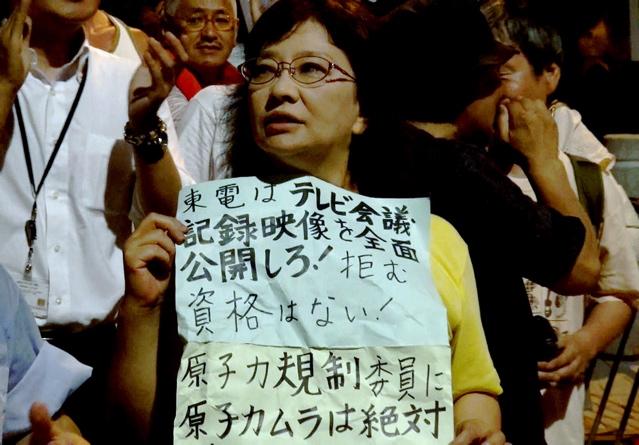 東電はテレビ会議
記録映像を全面
公開しろ!拒む
資格はない!
原子力規制委員に
原子力ムラは絶対